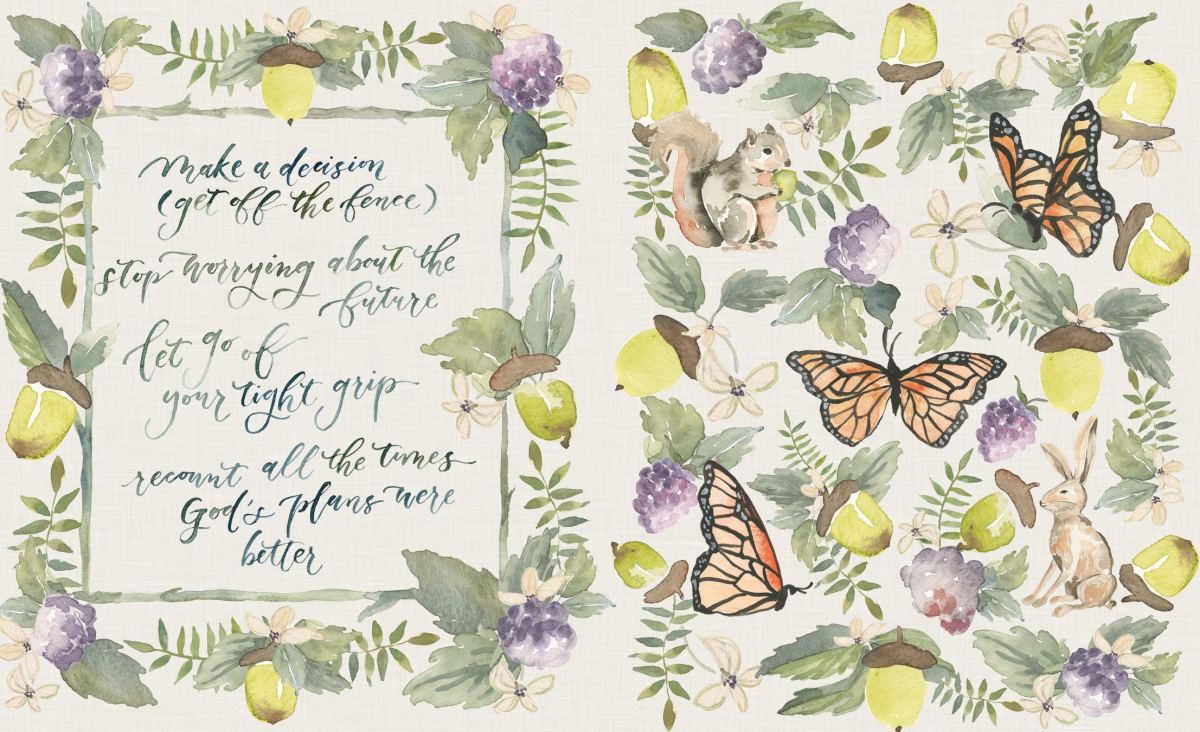 make a decision
(get off the fence)
stop worrying about the
future
let go of
your tight grip
recount all the times
God's plans were
better